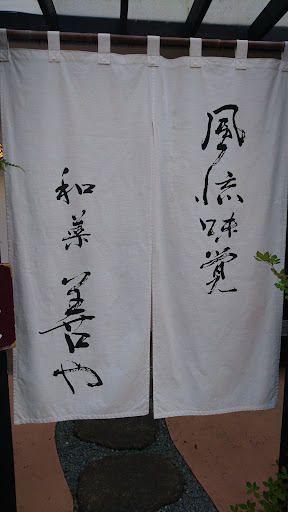 風流味覚
和菜
善や